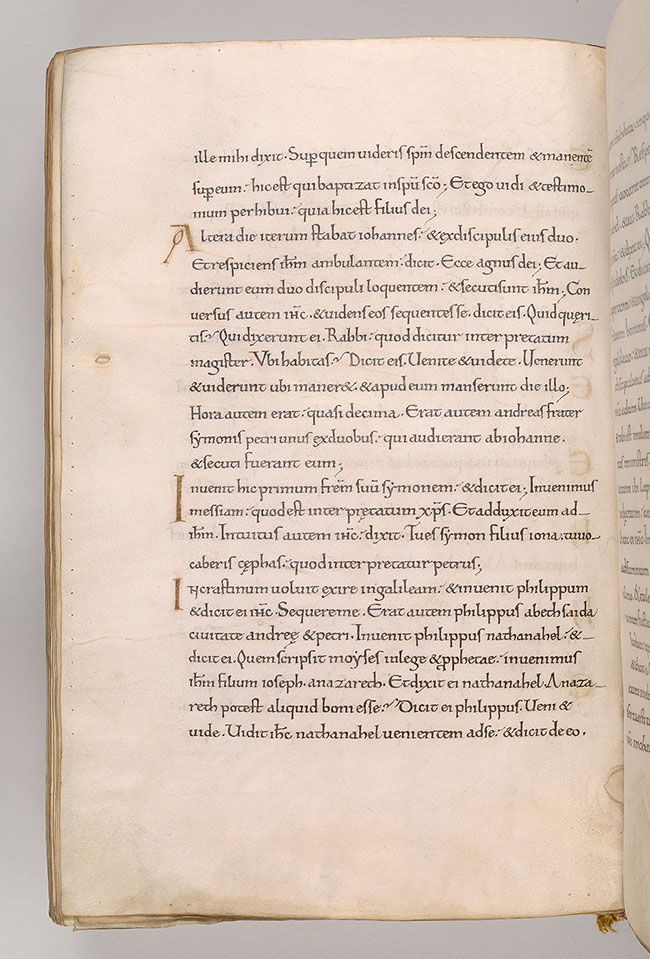 ille mihi dixit. Sup quem uideris spm̄ descendentem & manentē
sup eum: hic est qui baptizat in spū scō; Et ego uidi & testimo-
nium perhibui: quia hic est filius dei;
Altera die iterum stabat iohannes: & ex discipulis eius duo.
Et respiciens ihm̄ ambulantem: dicit. Ecce agnus dei; Et au-
dierunt eum duo discipuli loquentem: & secuti sunt ihm̄; Con
uersus autem ihc̄. & uidens eos sequentes se. dicit eis. Quid quęri-
tis? Qui dixerunt ei. Rabbi: quod dicitur interpretatum
magister. Vbi habitas? Dicit eis. Uenite & uidete. Uenerunt
& uiderunt ubi maner&: & apud eum manserunt die illo;
Hora autem erat: quasi decima. Erat autem andreas frater
symonis petri unus ex duobus: qui audierant ab iohanne.
& secuti fuerant eum;
Inuenit hic primum frēm suū symonem: & dicit ei; Inuenimus
messiam: quod est interpretatum xp̄s. Et adduxit eum ad-
ihm̄. Intuitus autem ihc̄: dixit. Tu es symon filius iona: tu uo-
caberis cęphas: quod interpretatur petrus;
In crastinum uoluit exire in galileam: & inuenit philippum
& dicit ei ihc̄. Sequere me. Erat autem philippus a bethsaida
ciuitate andreę & petri. Inuenit philippus nathanahel: &-
dicit ei. Quem scripsit moyses in lege & pphetae: inuenimus
ihm̄ filium ioseph. a nazareth. Et dixit ei nathanahel. A naza-
reth potest aliquid boni esse? Dicit ei philippus. Ueni &
uide. Uidit ihc̄ nathanahel uenientem ad se: & dicit de eo.